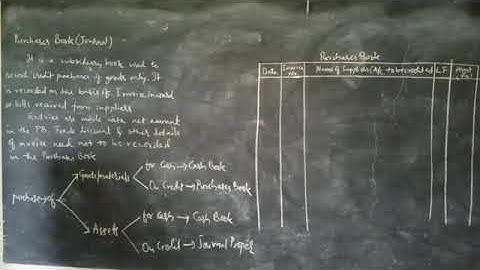 Purchases Book (Journal)
It is a subsidiary book used to
record credit purchases of goods only. It
is recorded on the basis of Invoice
or bills received from suppliers
Entries are made with net amount
in the PB. Trade discount & other details
of invoice need not to be recorded
in the Purchases Book
purchase of
Goods/materials
for Cash → Cash Book
On Credit → Purchases Book
Assets
for Cash → Cash Book
On Credit → Journal Proper
Purchases Book
Date
Invoice No.
Name of Suppliers (A/c to be credited)
L.F.